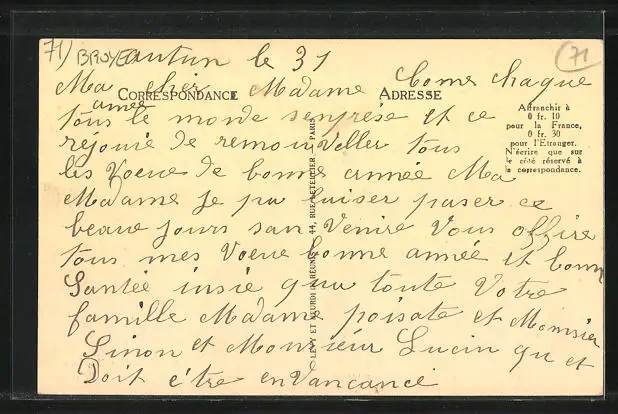 71) BROYE
autun le 31
71
Ma cher Madame Come chaque
CORRESPONDANCE
ADRESSE
année
tous le monde senprése et ce
réjouie de remouveller tous
les Voeue de bonne année Ma
Madame je pu laiser paser ce
beaue jours san Venire Vous offire
tous mes Voeue bonne année et bonne
Santée insie qua toute Votre
famille Madame poisate et Monsieu
Simon et Monsieur Lucin qu et
Doit être en Vancance
Affranchir à
0 fr. 10
pour la France,
0 fr. 30
pour l'Etranger.
N'écrire que sur
le côté réservé à
la correspondance.
LEVY ET NEURDEIN RÉUNIS, 44, RUE LETELLIER — PARIS